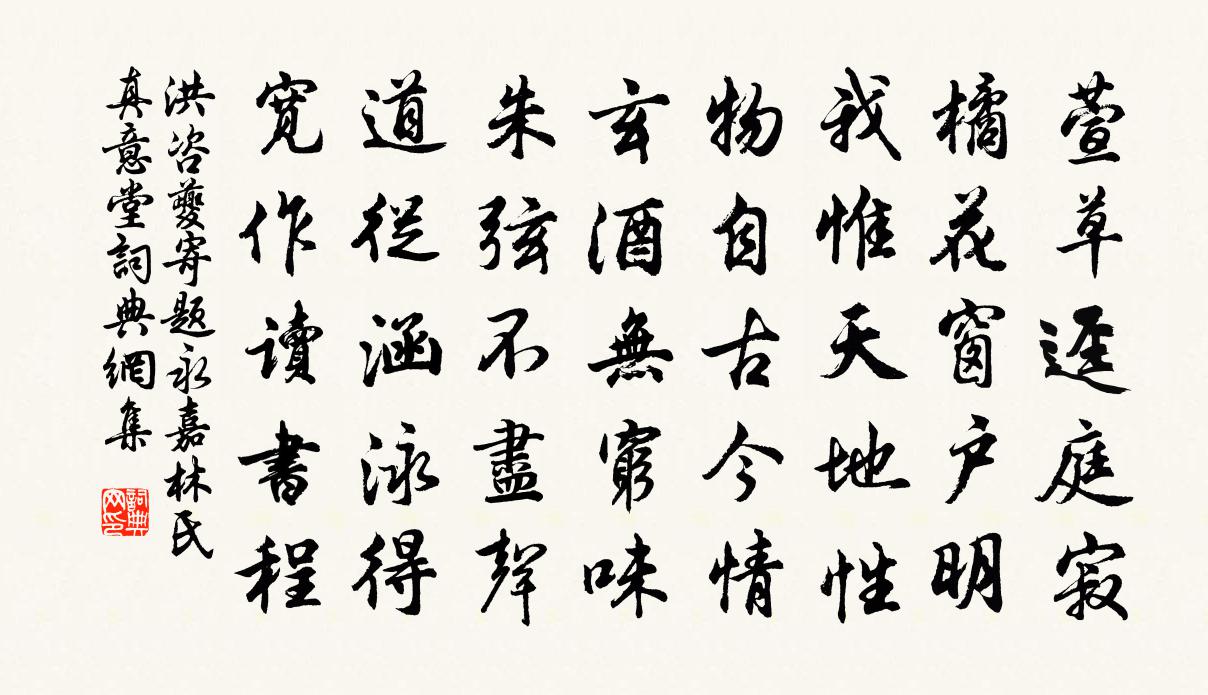 萱草逕庭寂
橘花窗户明
我惟天地性
物自古今情
玄酒無窮味
朱弦不盡聲
道從涵泳得
寬作讀書程
洪咨夔寄題永嘉林氏
真意堂詞典網集
詞典
网印